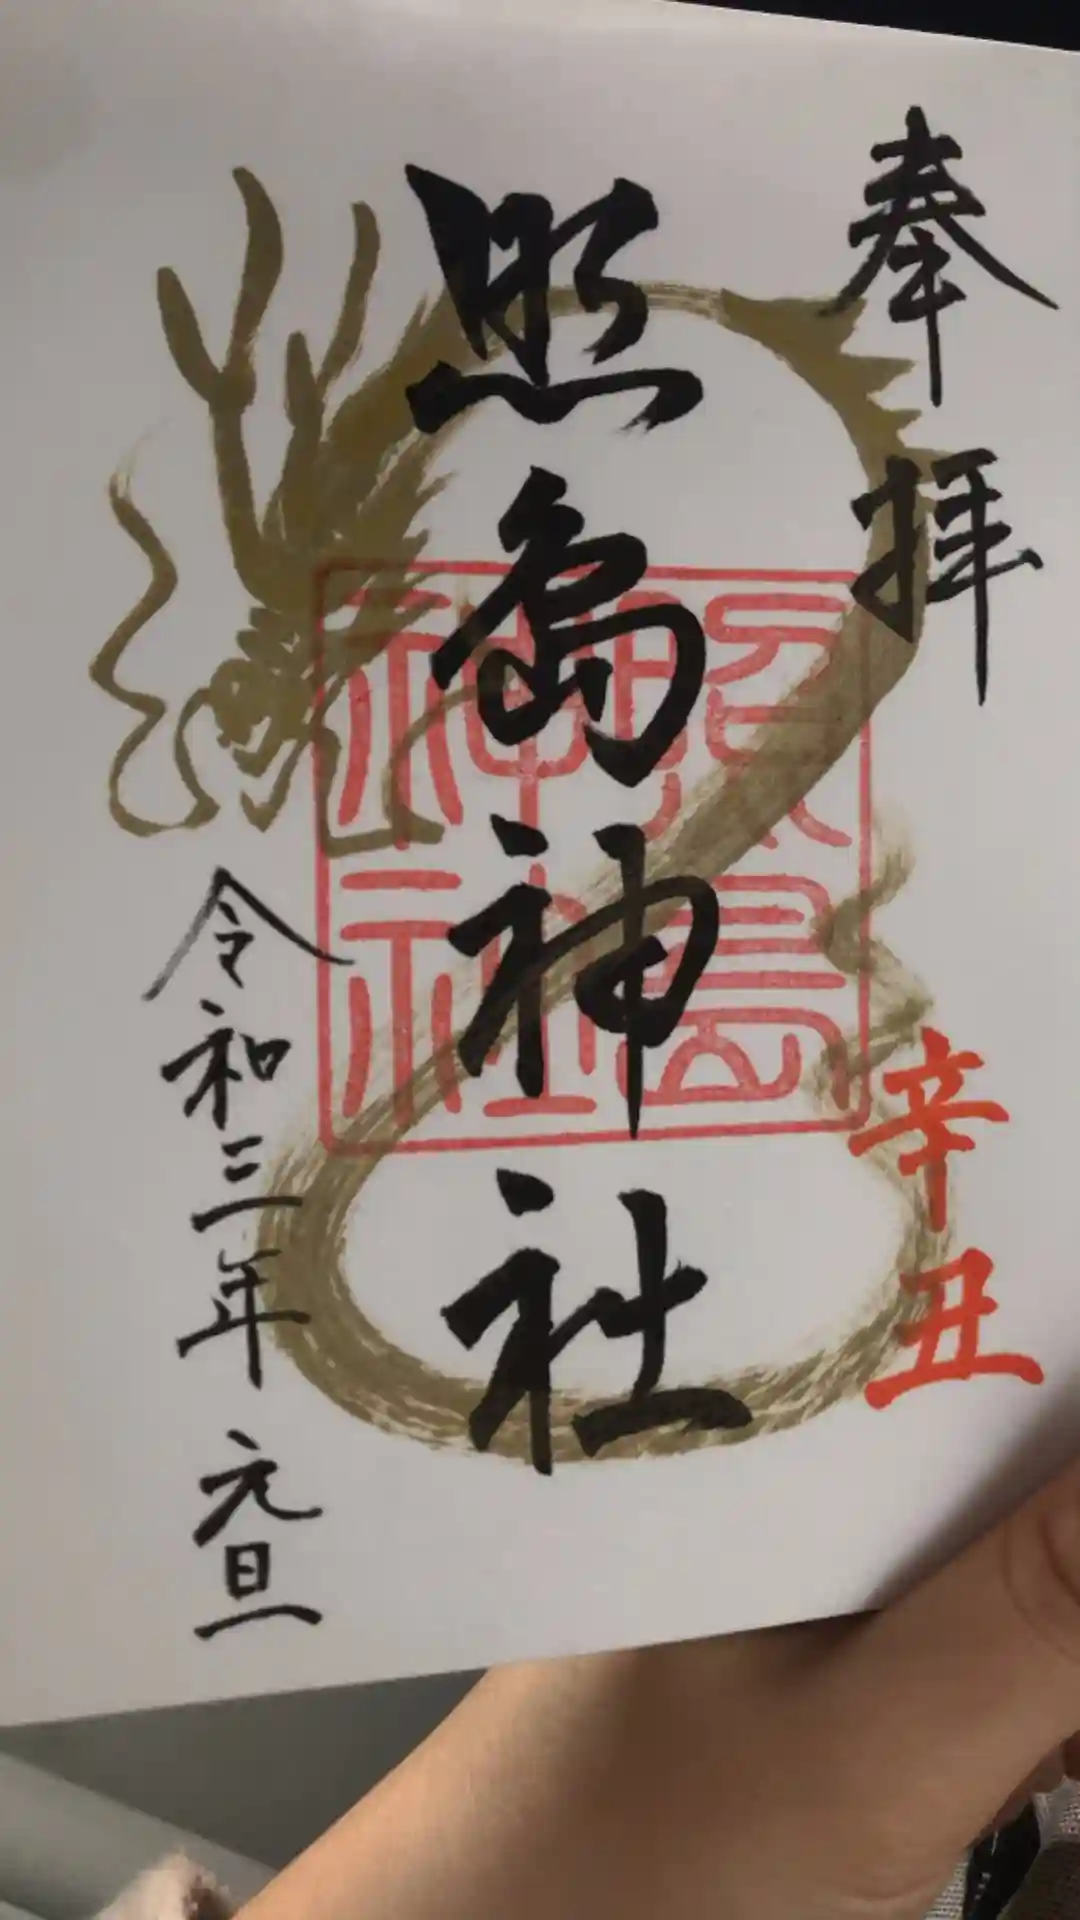 奉拝
辛丑
照島神社
照島
神社
令和三年 元旦